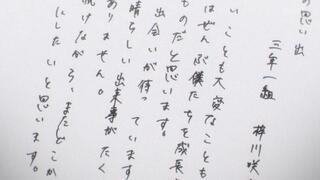 の思い出
三年一組 梓川咲
い ことも大変なことも
はぜんぶ僕たちを成長
ものだと思います。
出会いが待っています
晴らしい出来事がたく
ありません。
続けながら、またどこか
にしたいと思います。